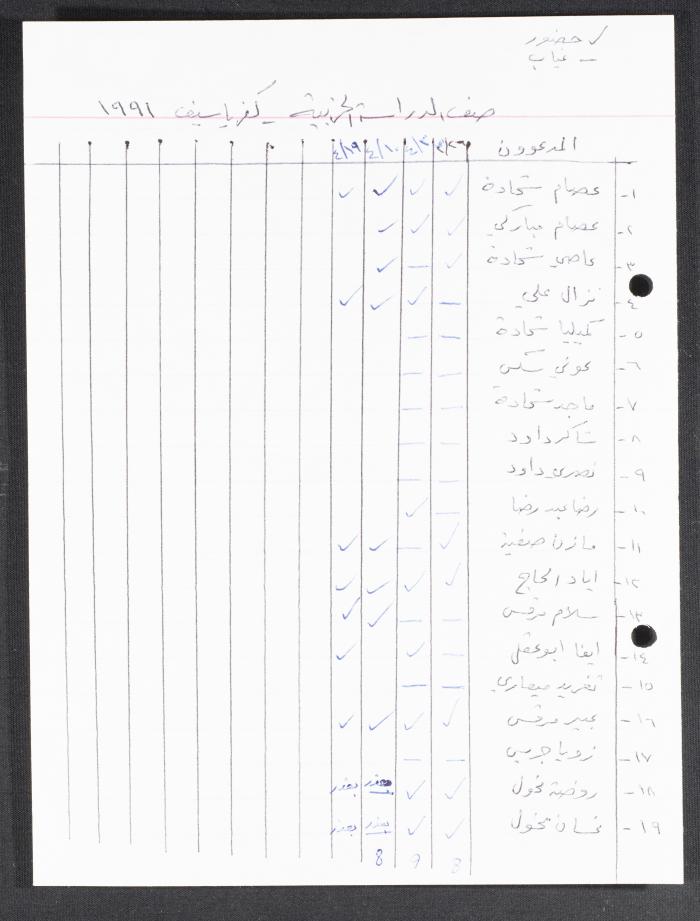 ✓ حضور
- غياب
صنف الدراسة الحزبية - كفرياسيف ١٩٩١
المدعوون ٣/٢٦ ٤/٣ ٤/١٠ ٤/١٩
١- عصام شحادة ✓ ✓ ✓ ✓
٢- عصام مباركي ✓ ✓ ✓
٣- عاصي شحادة ✓ — ✓
٤- نزال علي — ✓ ✓ ✓
٥- كميليا شحادة — —
٦- عوني سكس — —
٧- ماجد شحادة — —
٨- شاكر داود — —
٩- نصري داود — —
١٠- رضا عبد رضا — ✓
١١- مازن صفية ✓ — ✓ ✓
١٢- اياد الحاج ✓ ✓ ✓ ✓
١٣- سلام مرقس — — ✓ ✓
١٤- ايفا ابو عقل — ✓ ✓
١٥- تغريد ميعاري — —
١٦- عبير مرقس ✓ ✓ ✓ ✓
١٧- زويا جريس — —
١٨- روضة مخول ✓ ✓ بعذر بعذر
١٩- غسان مخول ✓ ✓ بعذر بعذر
8 9 8